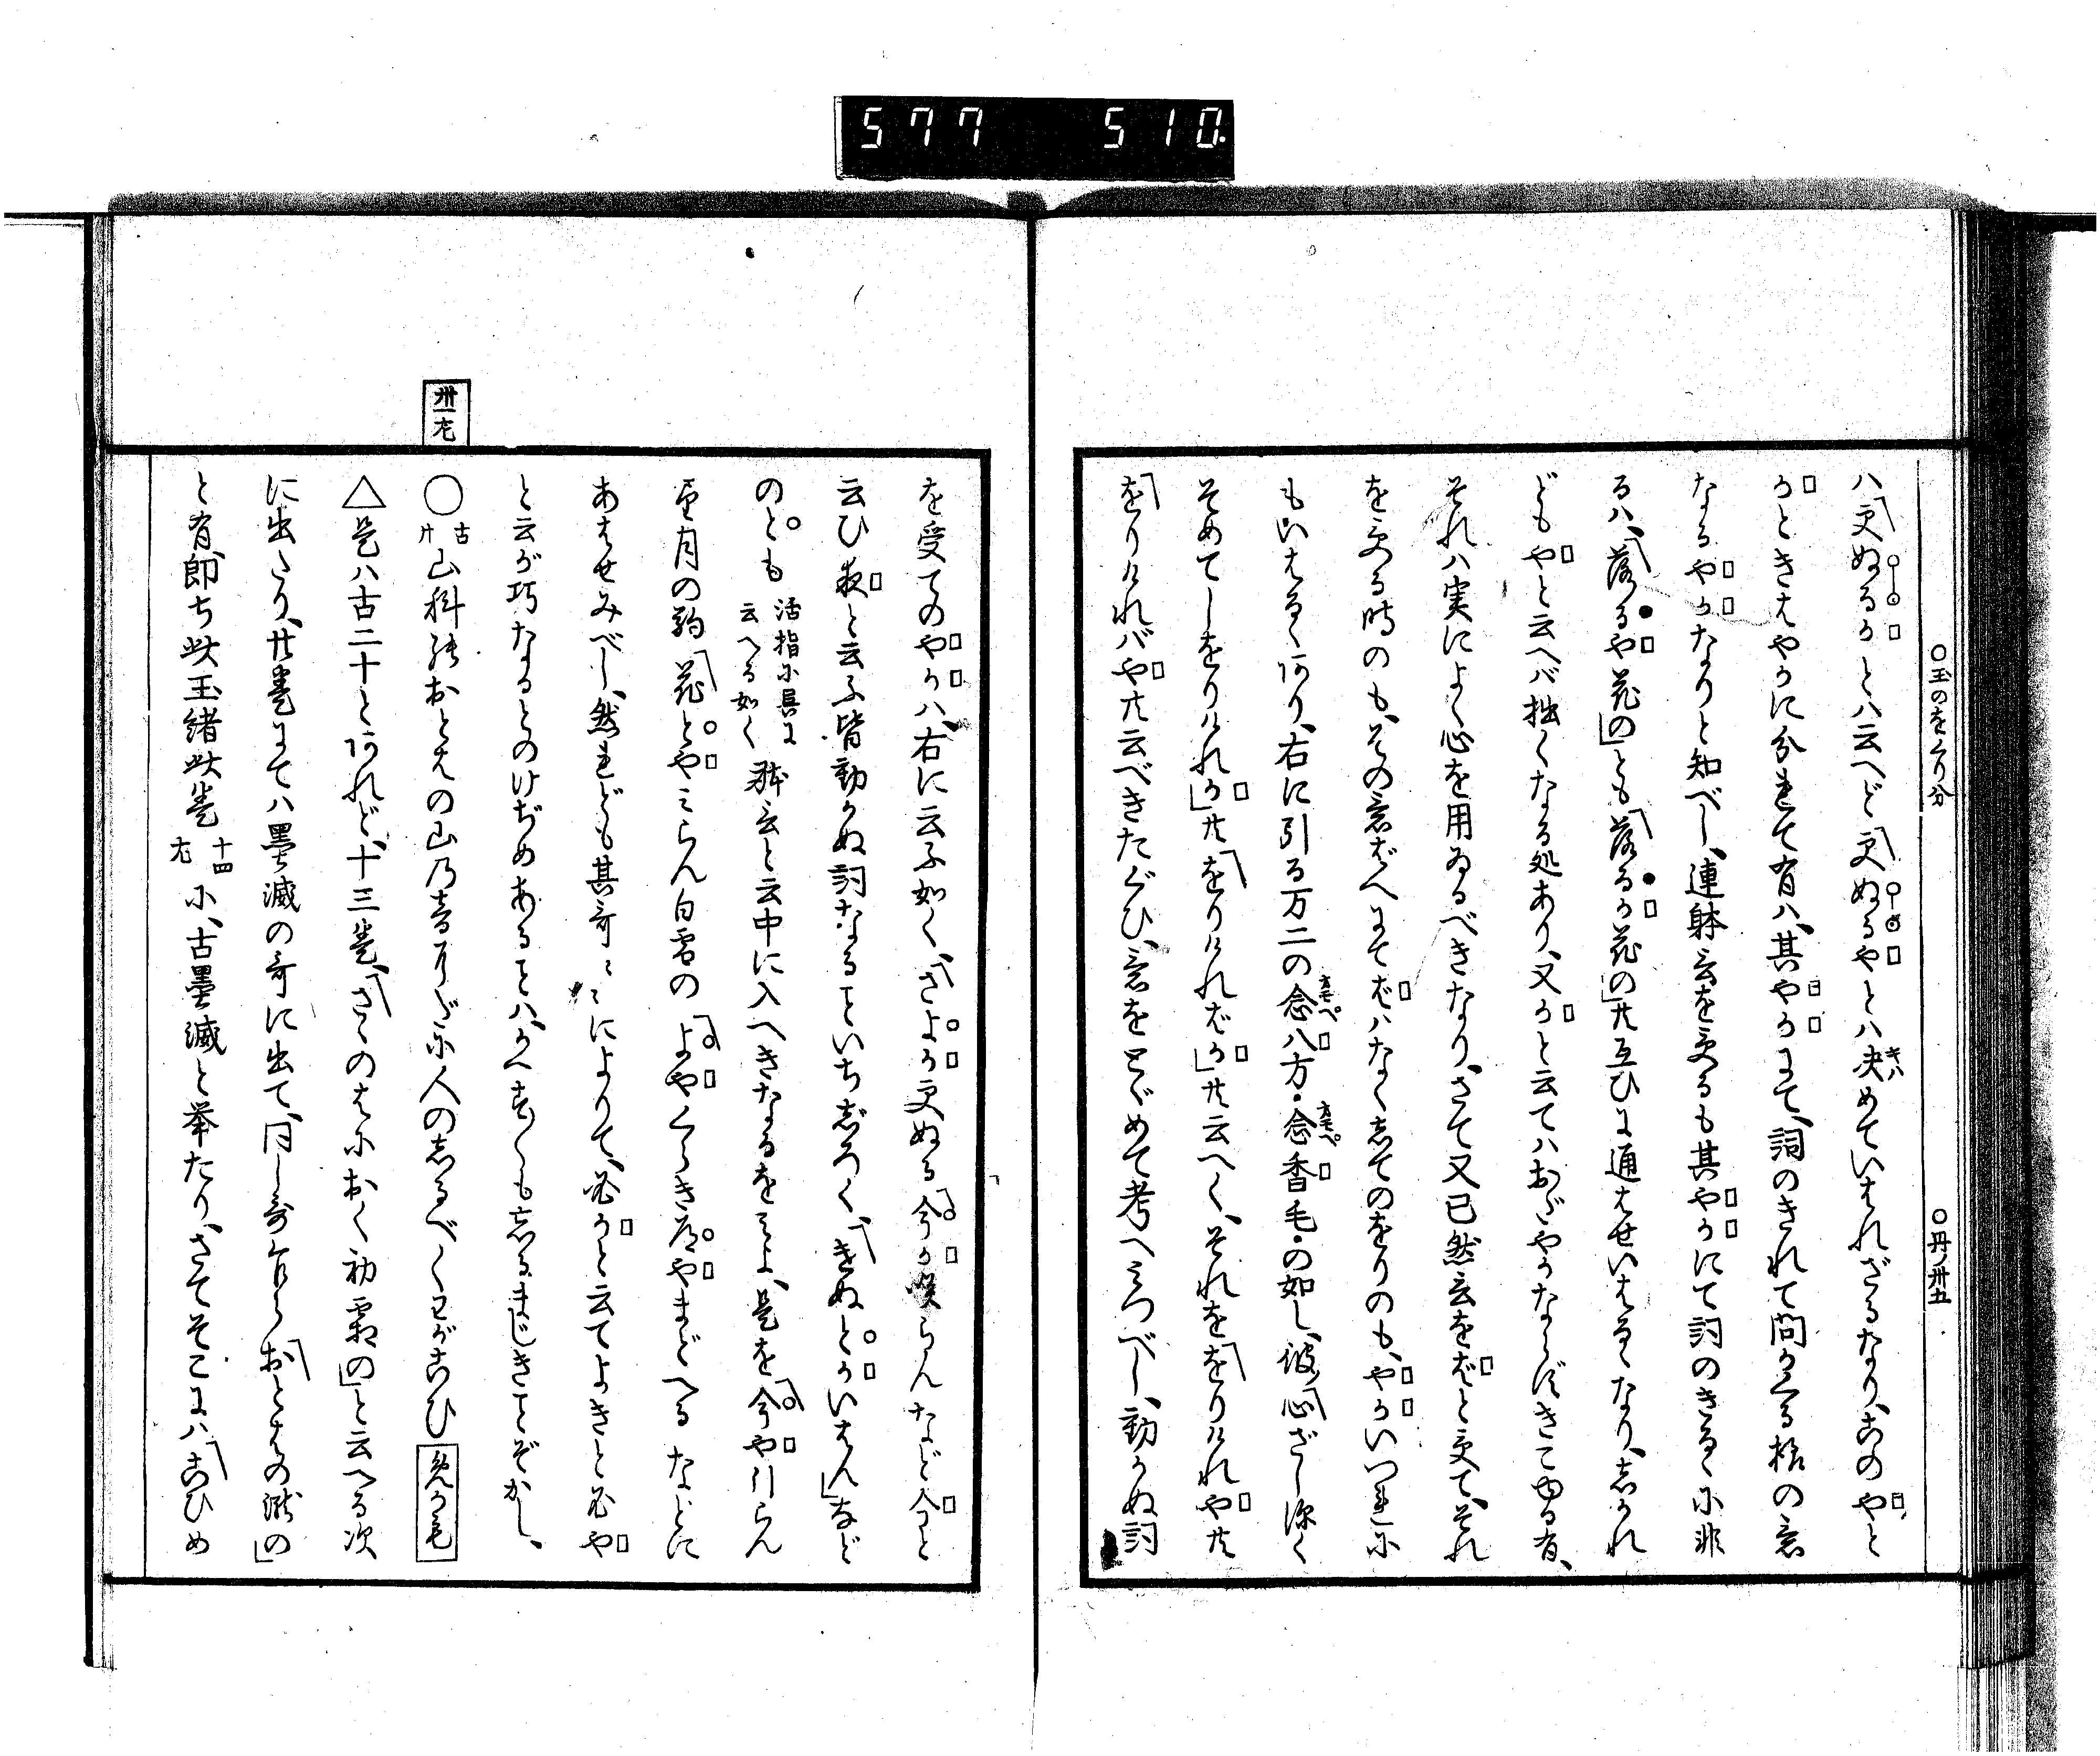 577 510
○玉のをくり分 ○丹ノ卅五
ハ更ぬるかとハ云へど更ぬるやとハ決めていはれざるなり、このやと
かときはやかに分れて有ハ、其やかにて、詞のきれて問かくる格の意
なるやかなりと知べし、連躰言を受るも其やかにて詞のきるゝに非
るハ、落るや花の」とも落るか花の」共互ひに通はせいはるゝなり、しかれ
どもやと云ヘバ拙くなる処あり、又かと云てハおだやかならずきこゆる有、
それハ実によく心を用ゐるべきなり、さて又已然言をばと受て、それ
を受る時のも、その意ばへにてばハなくしてのをりのも、やかいつれに
もいはるゝなり、右に引る万二の念八方・念香毛・の如し、彼心ざし深く
そめてしをりけれか」共をりければか」共云へく、それをゝりけれや共
をりけれバや共云べきたぐひ、意をとゞめて考へみつべし、動かぬ詞
を受てのやかハ、右に云ふ如く、さよか更ぬる今か咲らんなど今と
云ひ夜と云ふ皆動かぬ詞なることいちじろく、きぬとかいはん」など
のとも 活指小具に云へる如く 躰言と云中に入へきなるをみよ、是を今や引らん
望月の駒花とやみらん白雪のよやくらき道やまどへるなどに
あはせみべし、然れども其哥〻によりて、必かと云てよきと必や
と云が巧なるとのけぢめあることハ、かへすくも忘るまじきことぞかし、
卅一左
○古廿山科の おとはの山乃音にだに人の志るべくわがこひめかも
△是ハ古二十とあれど、十三巻、さゝのはにおく初霜の」と云へる次
に出たり、廿巻にてハ墨滅の哥に出て、同し哥ながらおとはの瀧の」
と有、即ち此玉緒此巻 十四左 に、古墨滅と挙たり、さてそこにハこひめ